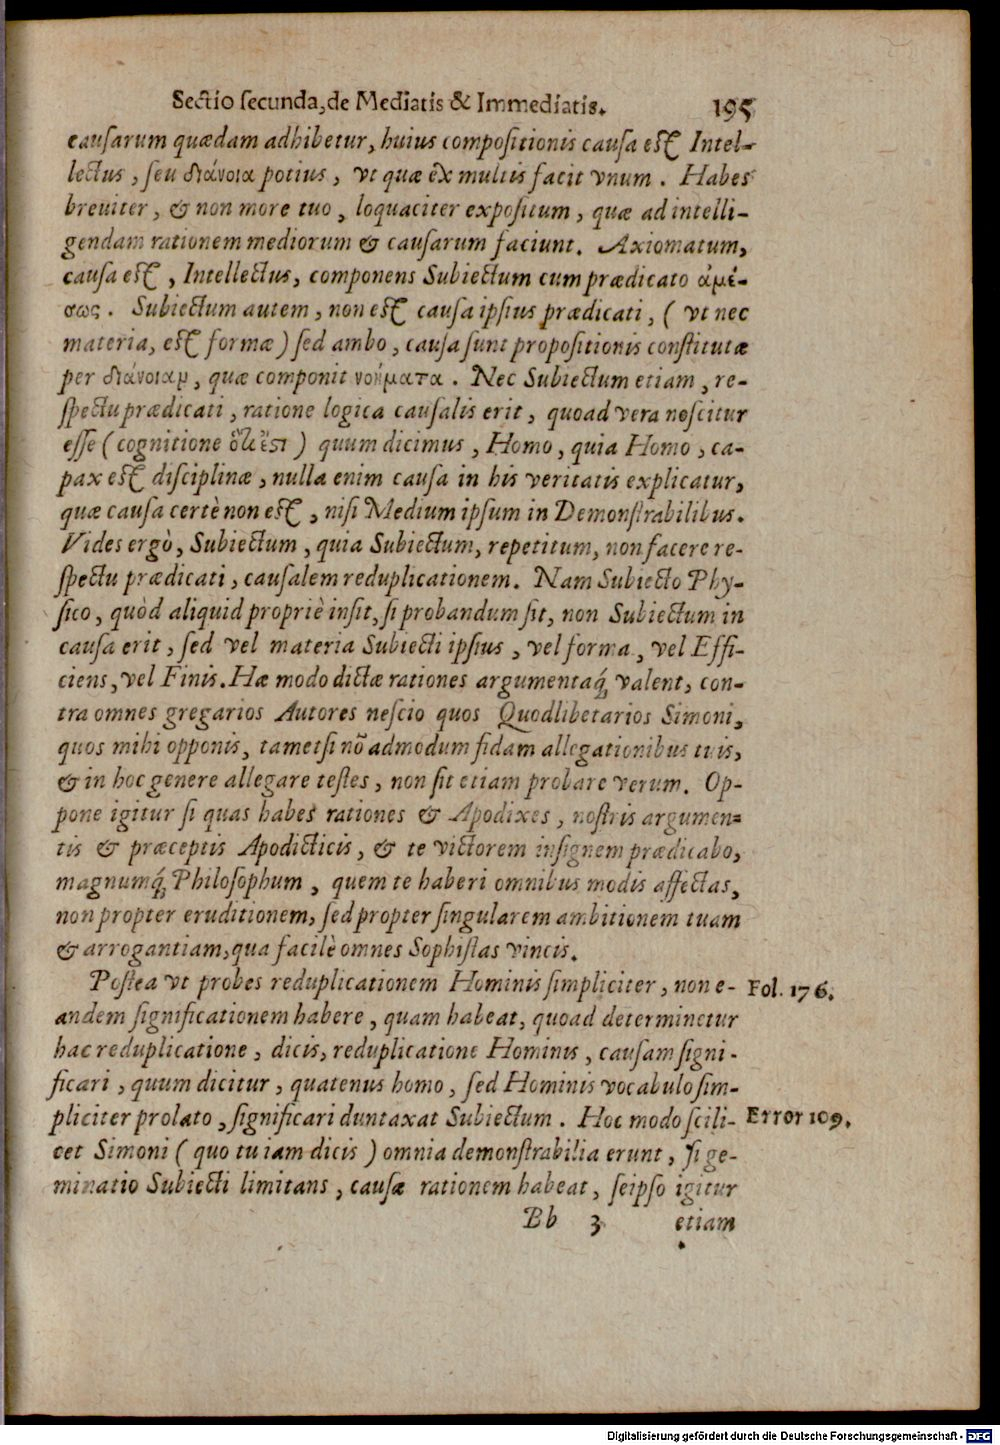 Sectio secunda, de Mediatis & Immediatis. 195
causarum quædam adhibetur, huius compositionis causa est Intel-
lectus, seu διάνοια potius, vt quæ ex multis facit vnum. Habes
breuiter, & non more tuo, loquaciter expositum, quæ ad intelli-
gendam rationem mediorum & causarum faciunt. Axiomatum,
causa est, Intellectus, componens Subiectum cum prædicato ἀμέ-
σως. Subiectum autem, non est causa ipsius prædicati, (vt nec
materia, est formæ) sed ambo, causa sunt propositionis constitutæ
per διάνοιαμ, quæ componit νοήματα. Nec Subiectum etiam, re-
spectu prædicati, ratione logica causalis erit, quoad vera noscitur
esse (cognitione ὅτι ἔστι) quum dicimus, Homo, quia Homo, ca-
pax est disciplinæ, nulla enim causa in his veritatis explicatur,
quæ causa certè non est, nisi Medium ipsum in Demonstrabilibus.
Vides ergò, Subiectum, quia Subiectum, repetitum, non facere re-
spectu prædicati, causalem reduplicationem. Nam Subiecto Phy-
sico, quòd aliquid propriè insit, si probandum sit, non Subiectum in
causa erit, sed vel materia Subiecti ipsius, vel forma, vel Effi-
ciens, vel Finis. Hæ modo dictæ rationes argumentaq́; valent, con-
tra omnes gregarios Autores nescio quos Quodlibetarios Simoni,
quos mihi opponis, tametsi nõ admodum fidam allegationibus tuis,
& in hoc genere allegare testes, non sit etiam probare verum. Op-
pone igitur si quas habes rationes & Apodixes, nostris argumen-
tis & præceptis Apodicticis, & te victorem insignem prædicabo,
magnumq́; Philosophum, quem te haberi omnibus modis affectas,
non propter eruditionem, sed propter singularem ambitionem tuam
& arrogantiam, qua facilè omnes Sophistas vincis.
Postea vt probes reduplicationem Hominis simpliciter, non e- Fol. 176.
andem significationem habere, quam habeat, quoad determinetur
hac reduplicatione, dicis, reduplicatione Hominis, causam signi-
ficari, quum dicitur, quatenus homo, sed Hominis vocabulo sim-
pliciter prolato, significari duntaxat Subiectum. Hoc modo scili- Error 109.
cet Simoni (quo tu iam dicis) omnia demonstrabilia erunt, si ge-
minatio Subiecti limitans, causæ rationem habeat, seipso igitur
Bb 3 etiam
Digitalisierung gefördert durch die Deutsche Forschungsgemeinschaft - DFG